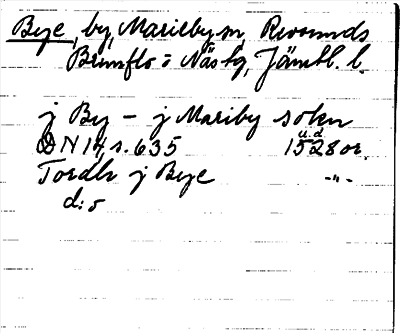 Bye, by, Marieby sn, Revsunds
Brunflo o Näs tg, Jämtl. l.
j By - j Marieby soken
DN 14 s. 635 u.d. 1528 or.
Tordh j Bye -"-
d:o